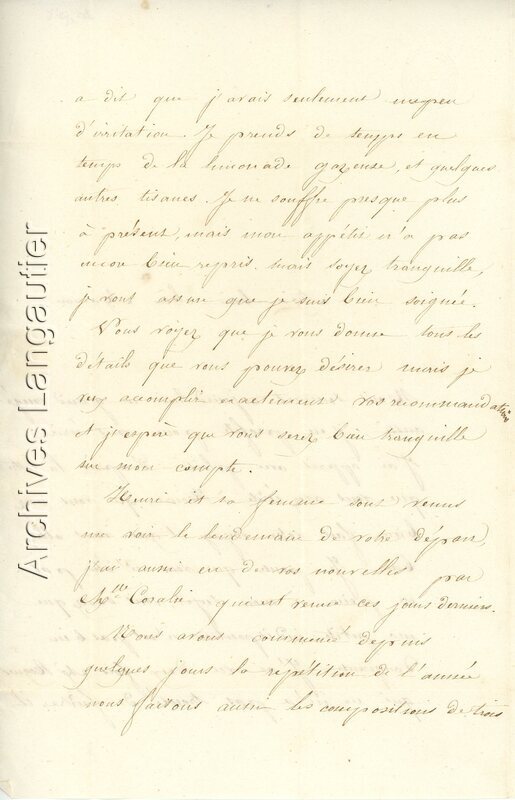 a dit que j'avais seulement un peu
d'irritation. Je prends de temps en
temps de la limonade gazeuse, et quelques
autres tisanes. Je ne souffre presque plus
à présent, mais mon appétit n'a pas
encore bien repris. mais soyez tranquille,
je vous assure que je suis bien soignée.
Vous voyez que je vous donne tous les
détails que vous pouvez désirer mais je
veux accomplir exactement vos recommandations
et j'espère que vous serez bien tranquille
sur mon compte.
Henri et sa femme sont venus
me voir le lendemain de votre départ,
j'ai aussi eu de vos nouvelles par
Melle Coralie qui est venue ces jours derniers.
Nous avons commencé depuis
quelques jours la répétition de l'année
nous faisons aussi les compositions de trois
Archives Langautier